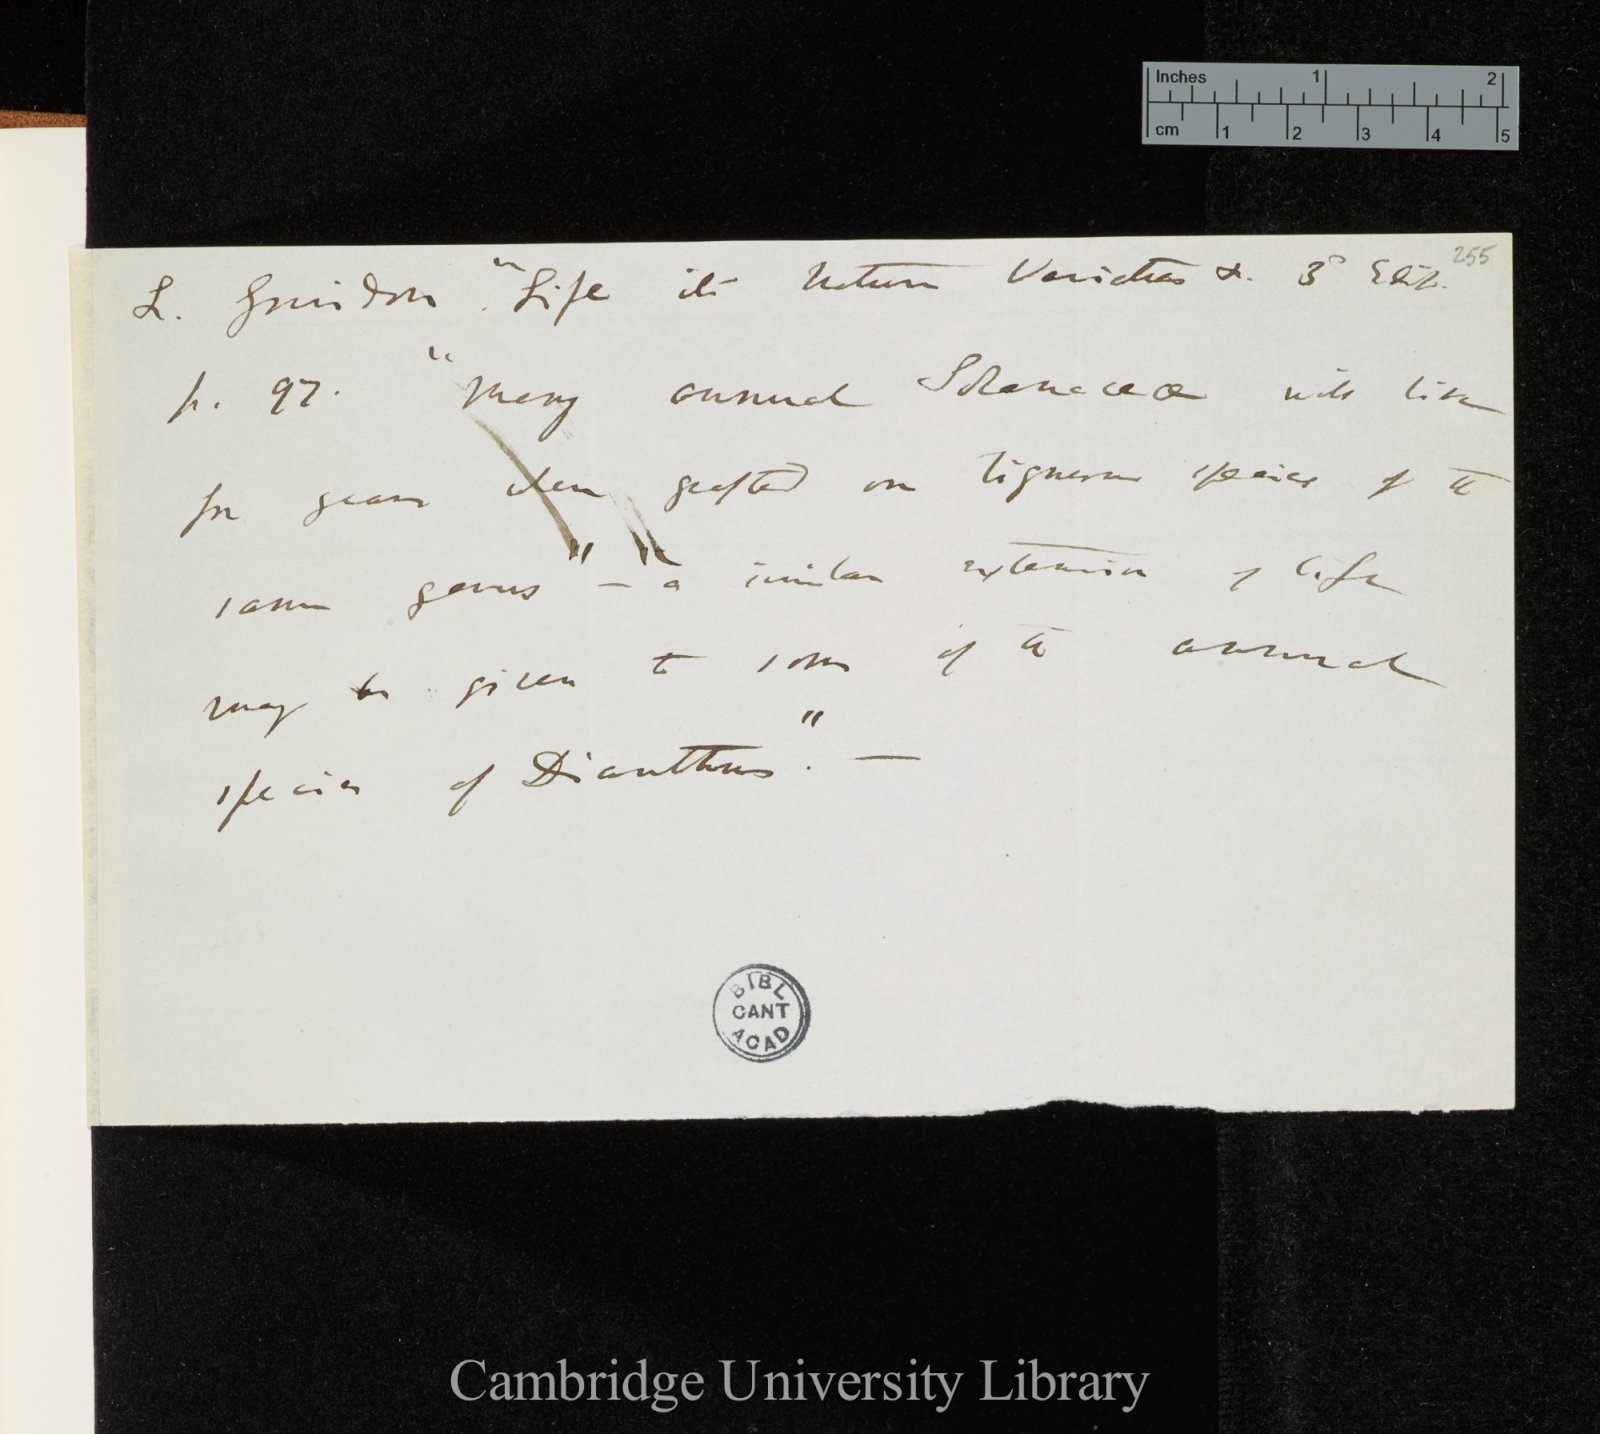 Inches 1 2
cm 1 2 3 4 5
255
L. Grindon "Life its Nature Varieties &. 3d Edit.
p. 97. "Many annual Solanaceæ will live
for years when grafted on ligneous species of the
same genus" — "a similar extension of life
may be given to some of the annual
species of Dianthus". —
BIBL
CANT
ACAD
Cambridge University Library